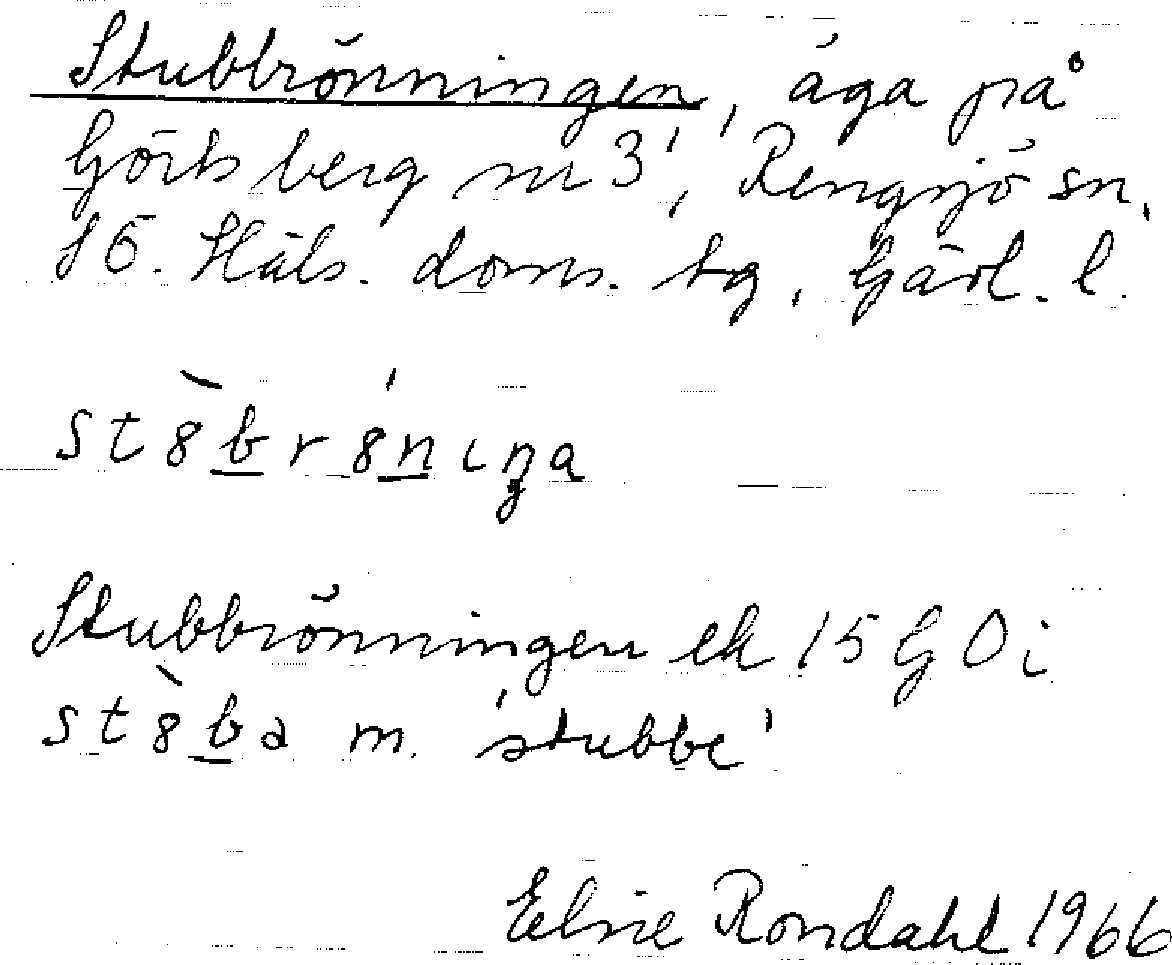 Stubbrönningen, äga på
Görtsberg nr 3¹, Rengsjö sn,
Sö. Häls. doms. tg, Gävl. l.
st8̀br8́nıŋa
Stubbrönningen ek 15 G Ö i
st8̀ba m. 'stubbe'
Elsie Rondahl 1966